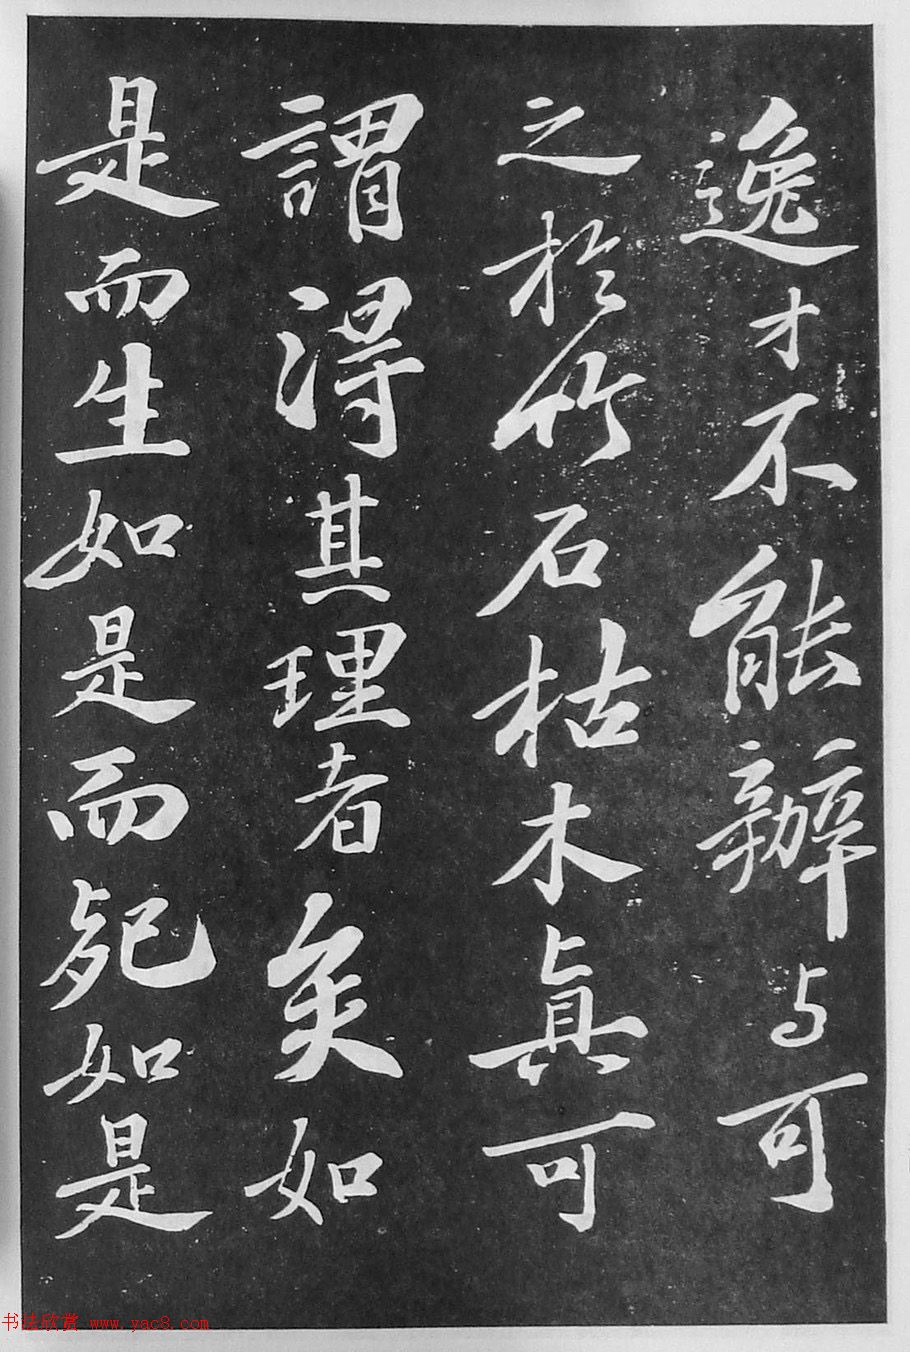 逸才不能辦与可
之於竹石枯木真可
謂得其理者矣如
是而生如是而死如是
书法欣赏 www.yac8.com